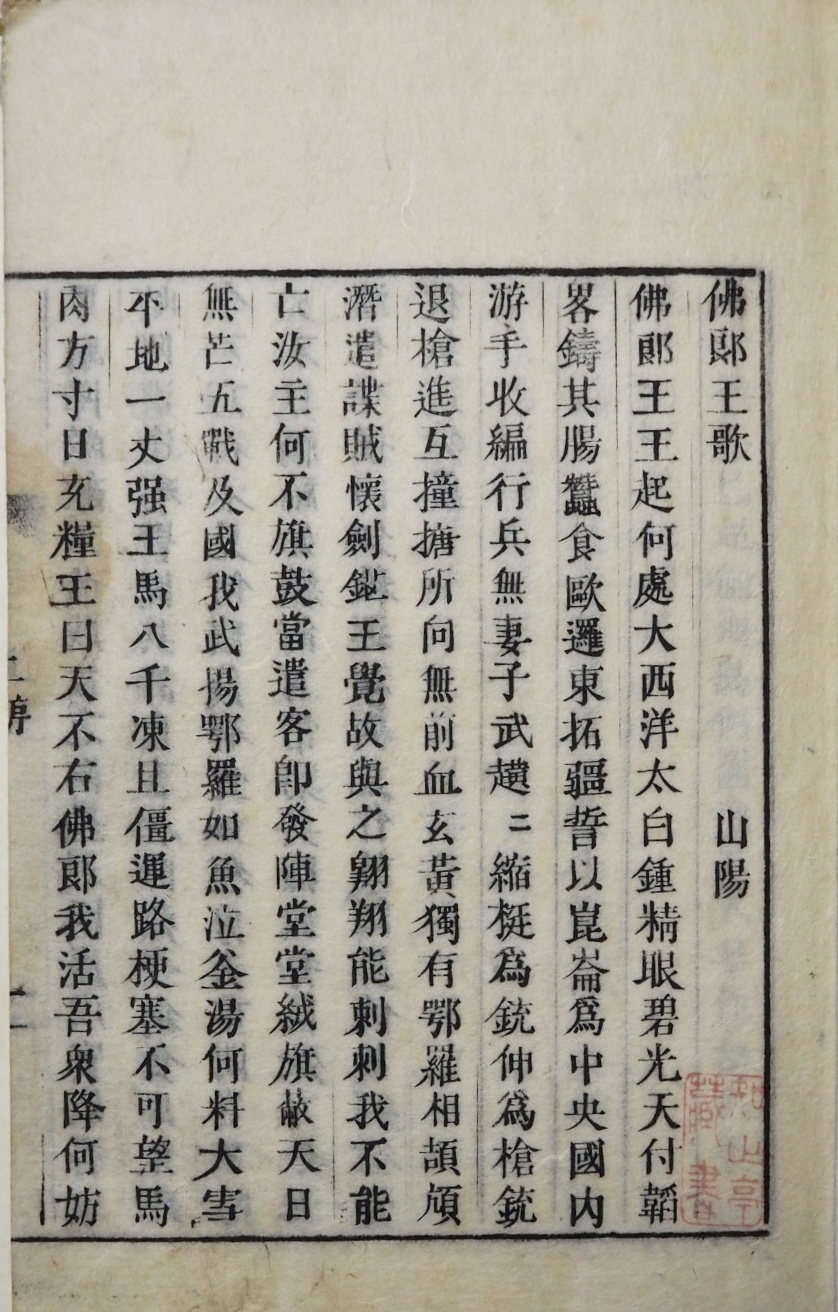 佛郎王歌　山陽
佛郎王王起何處大西洋太白鍾精眼碧光天付韜
畧鑄其腸蠶食歐邏東拓疆誓以崑崙爲中央國內
游手收編行兵無妻子武趪〻縮梃爲銃伸爲槍銃
退槍進互撞搪所向無前血玄黃獨有鄂羅相頡頏
潛遣諜賊懷劍鋩王覺故與之翺翔能刺刺我不能
亡汝主何不旗鼓當遣客卽發陣堂堂絨旗蔽天日
無芒五戰及國我武揚鄂羅如魚泣釜湯何料大雪
平地一丈强王馬八千凍且僵運路梗塞不可望馬
肉方寸日充糧王曰天不右佛郎我活吾衆降何妨
藏書